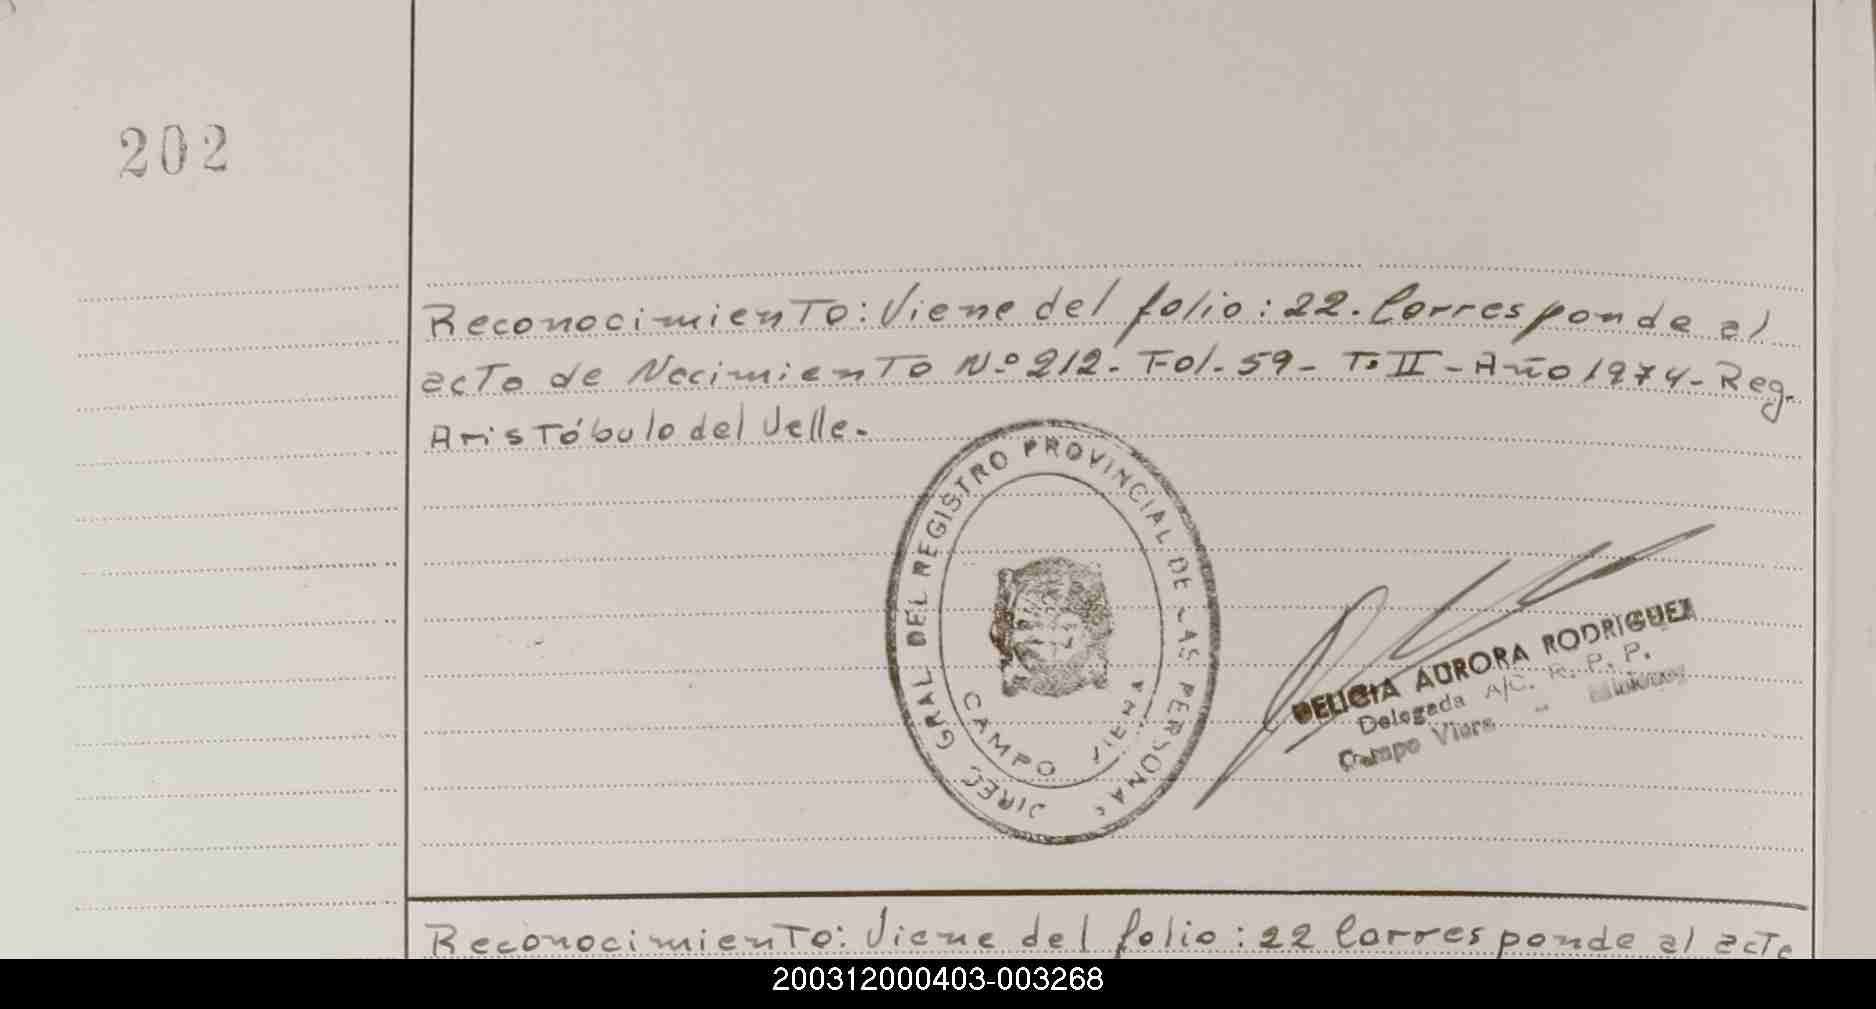 202
Reconocimiento: Viene del folio: 22. Corresponde al
acta de Nacimiento Nº 212. Fol. 59 - T. II - Año 1974 - Reg.
Aristóbulo del Valle.
DIREC GRAL DEL REGISTRO PROVINCIAL DE LAS PERSONAS
CAMPO VIERA
DELICIA AURORA RODRIGUEZ
Delegada A/C. R. P. P.
Campo Viera
Reconocimiento: Viene del folio: 22 Corresponde al acta
200312000403-003268